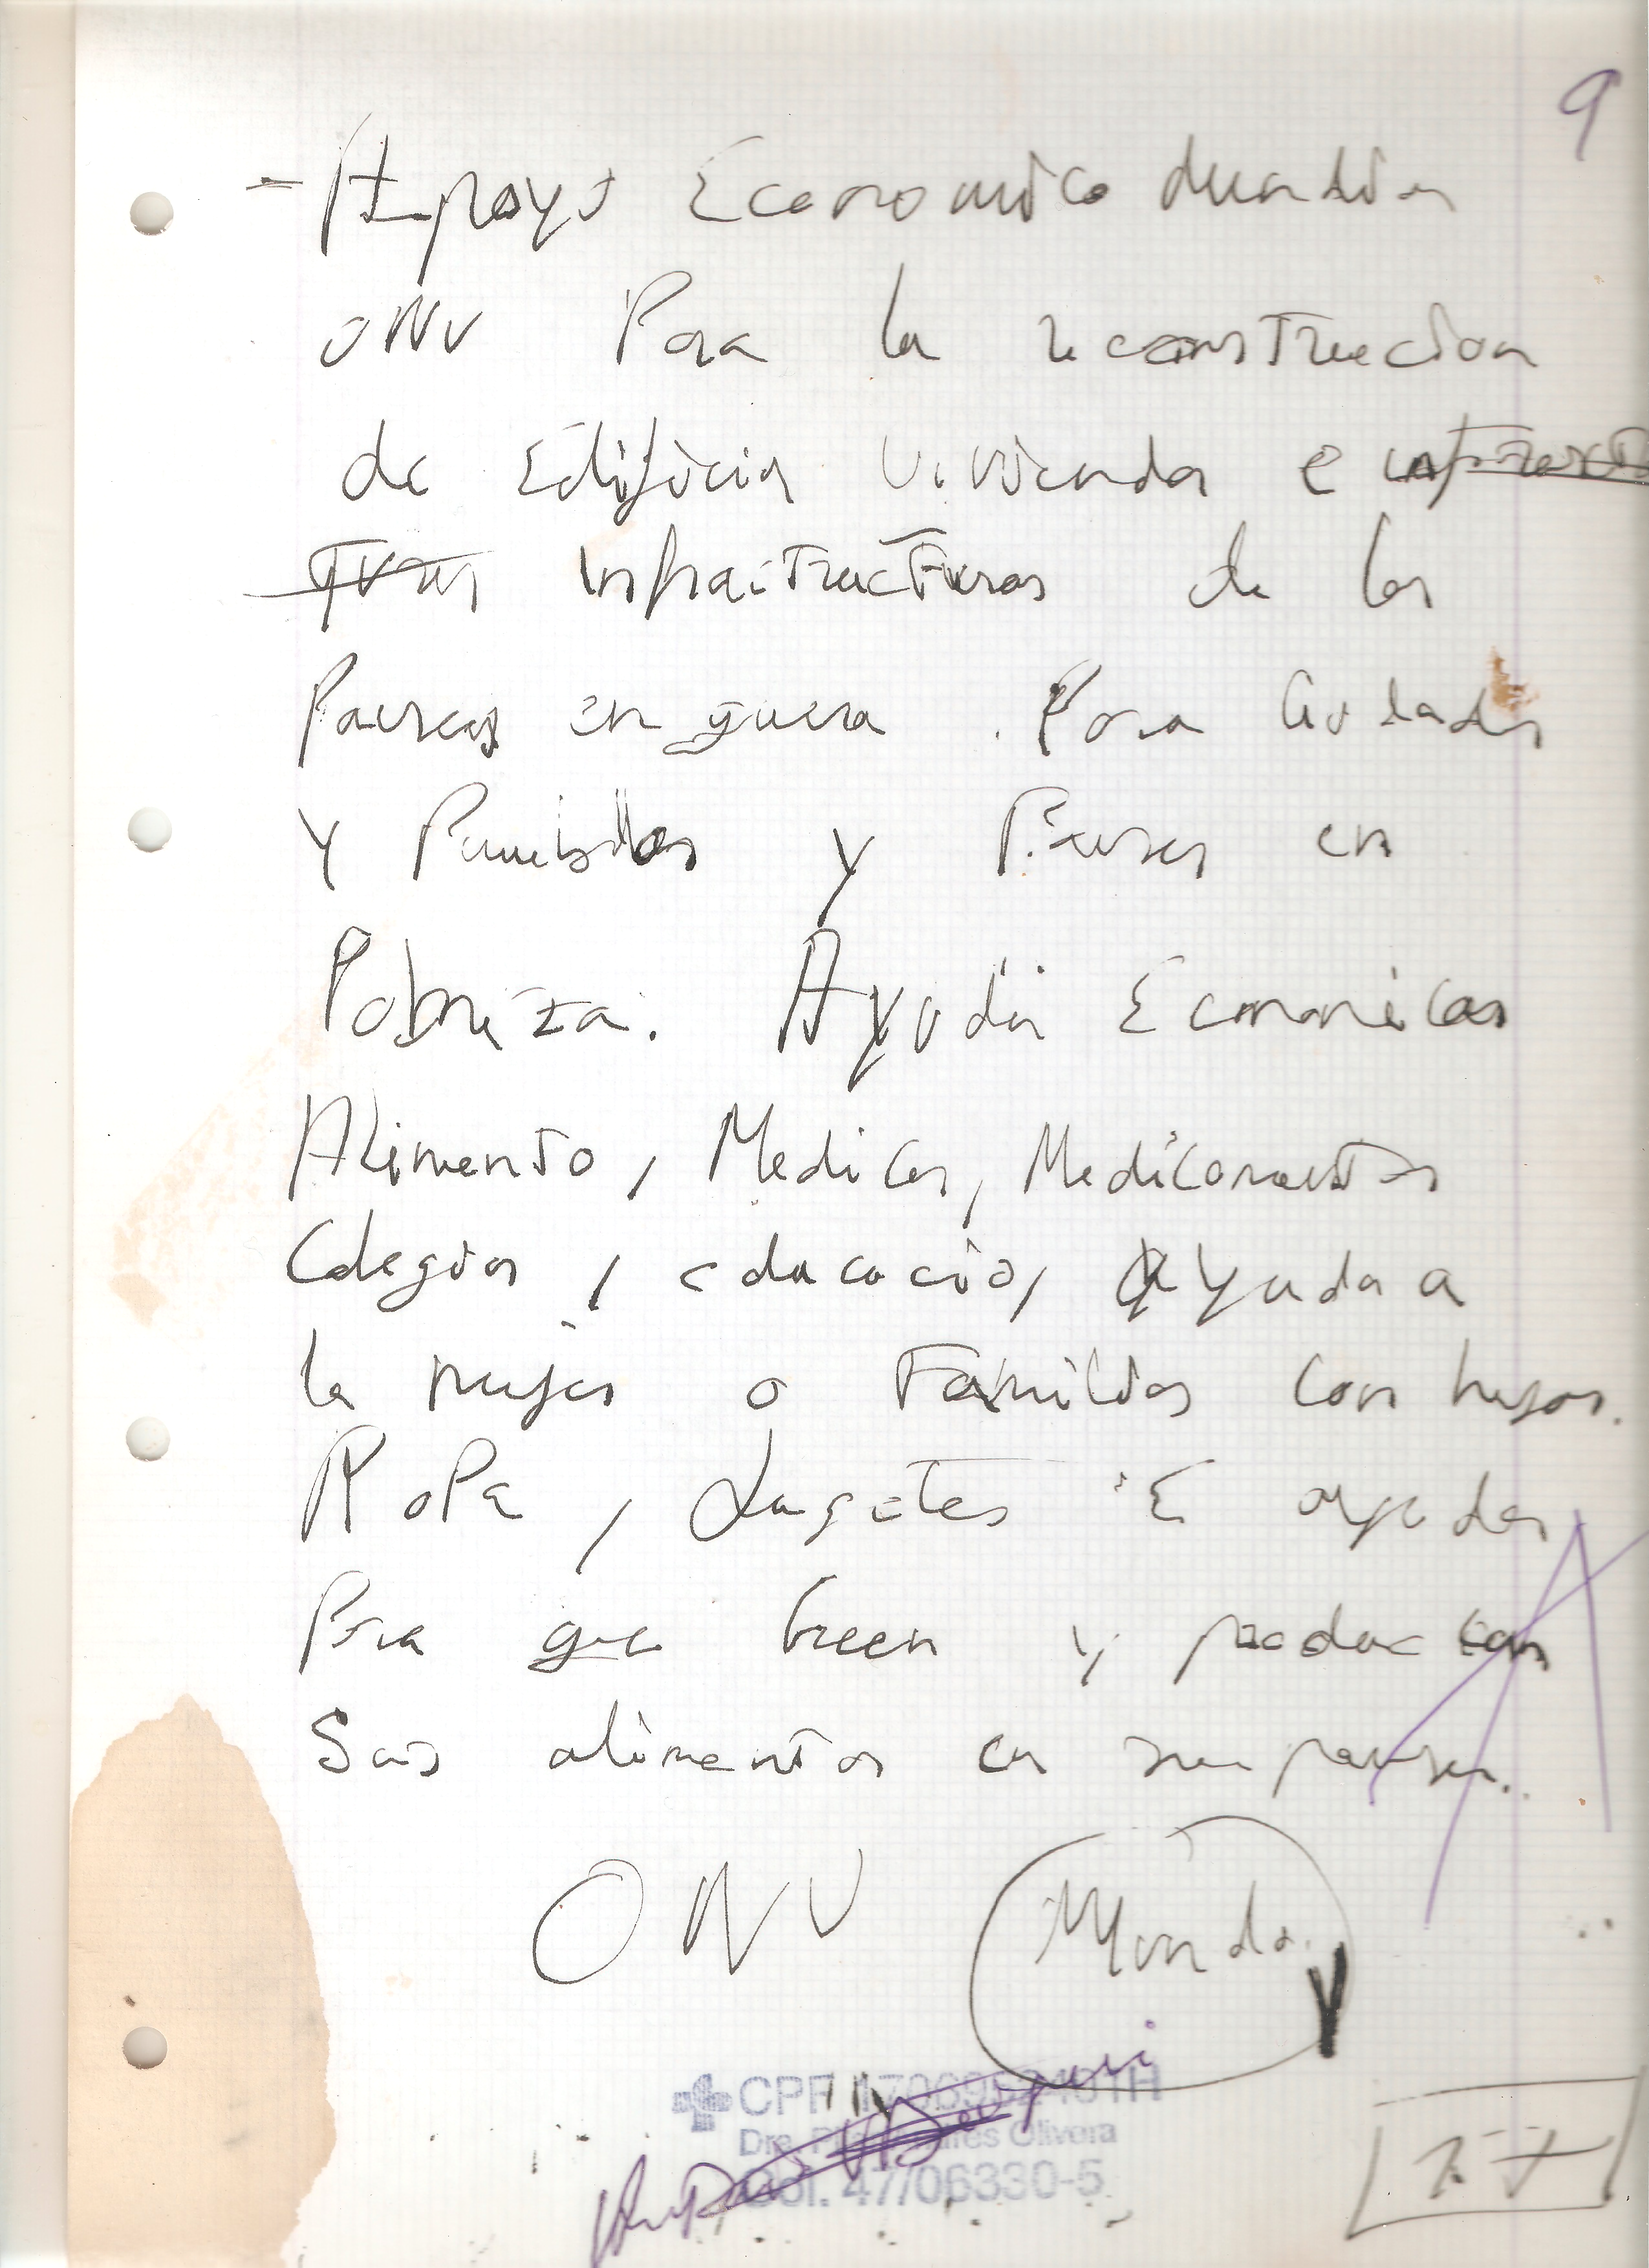 9
- Apoyo Economico Mundial
ONU Para la reconstruccion
de Edificios Vivienda e infraest
turas infraestructuras de los
Paises en guerra. Para Ciudades
y Pueblos y Paises en
Pobreza. Ayudas Economicas
Alimento, Medicos, Medicamentos
Colegios, educacio, Ayuda a
la mujer o Familias con hijos.
Ropa, Juguetes E ayudas
Para que Creen y produzcan
Sus alimentos en su paises.
ONU Mundo
CPF
Olivera
Col. 47/06330-5